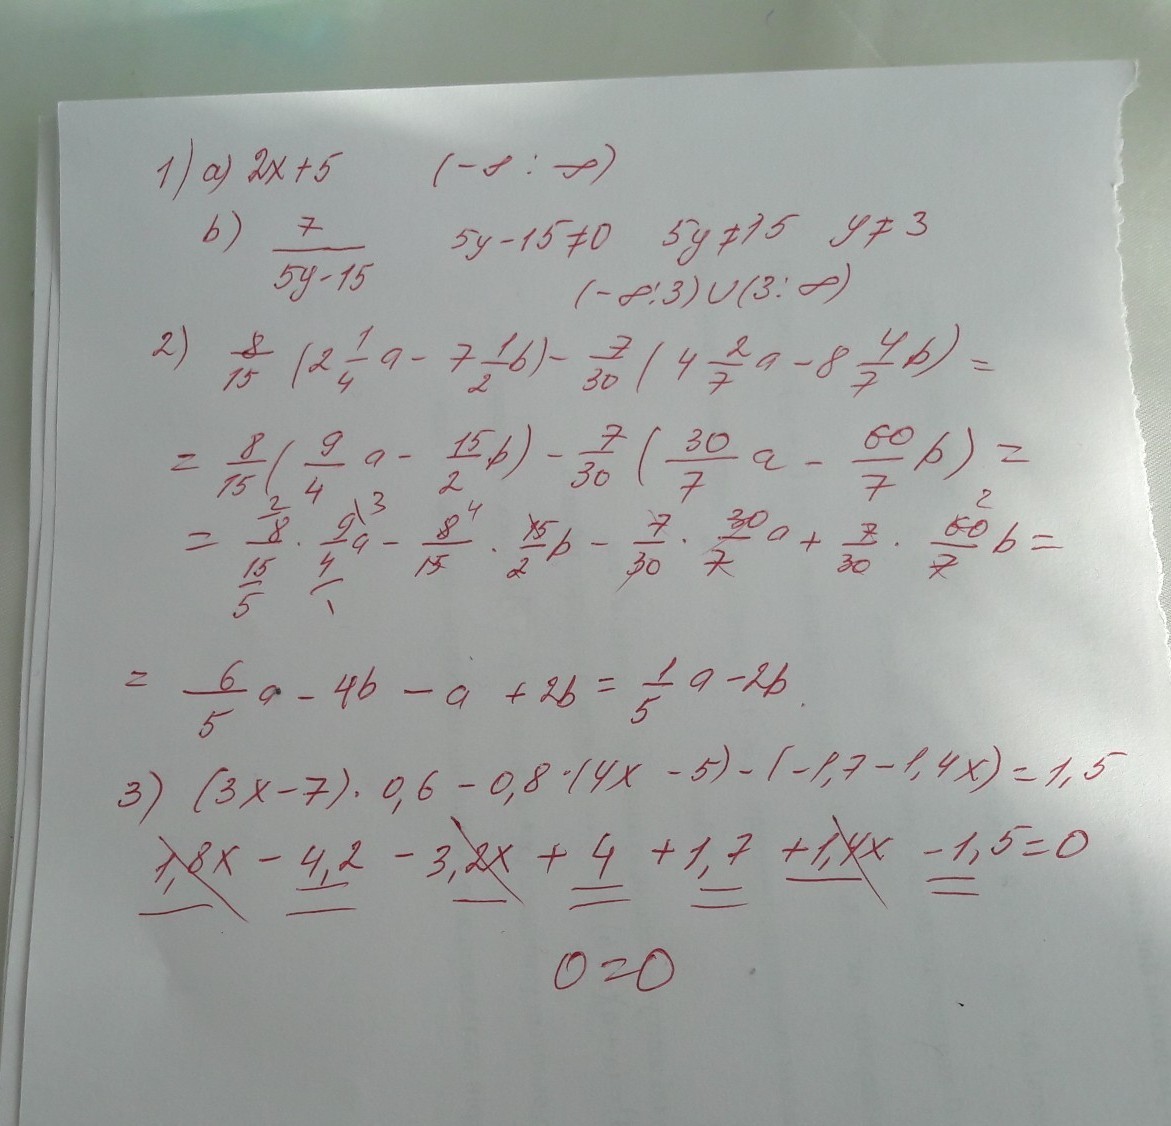 1) a) 2x+5 (-∞ : ∞)
b) 7/(5y-15) 5y-15≠0 5y≠15 y≠3
(-∞:3)∪(3:∞)
2) 8/15 (2 1/4 a - 7 1/2 b) - 7/30 (4 2/7 a - 8 4/7 b) =
= 8/15 (9/4 a - 15/2 b) - 7/30 (30/7 a - 60/7 b) =
= 8/15 · 9/4 a - 8/15 · 15/2 b - 7/30 · 30/7 a + 7/30 · 60/7 b =
= 6/5 a - 4b - a + 2b = 1/5 a - 2b.
3) (3x-7) · 0,6 - 0,8 · (4x - 5) - (-1,7 - 1,4x) = 1,5
1,8x - 4,2 - 3,2x + 4 + 1,7 + 1,4x - 1,5 = 0
0=0